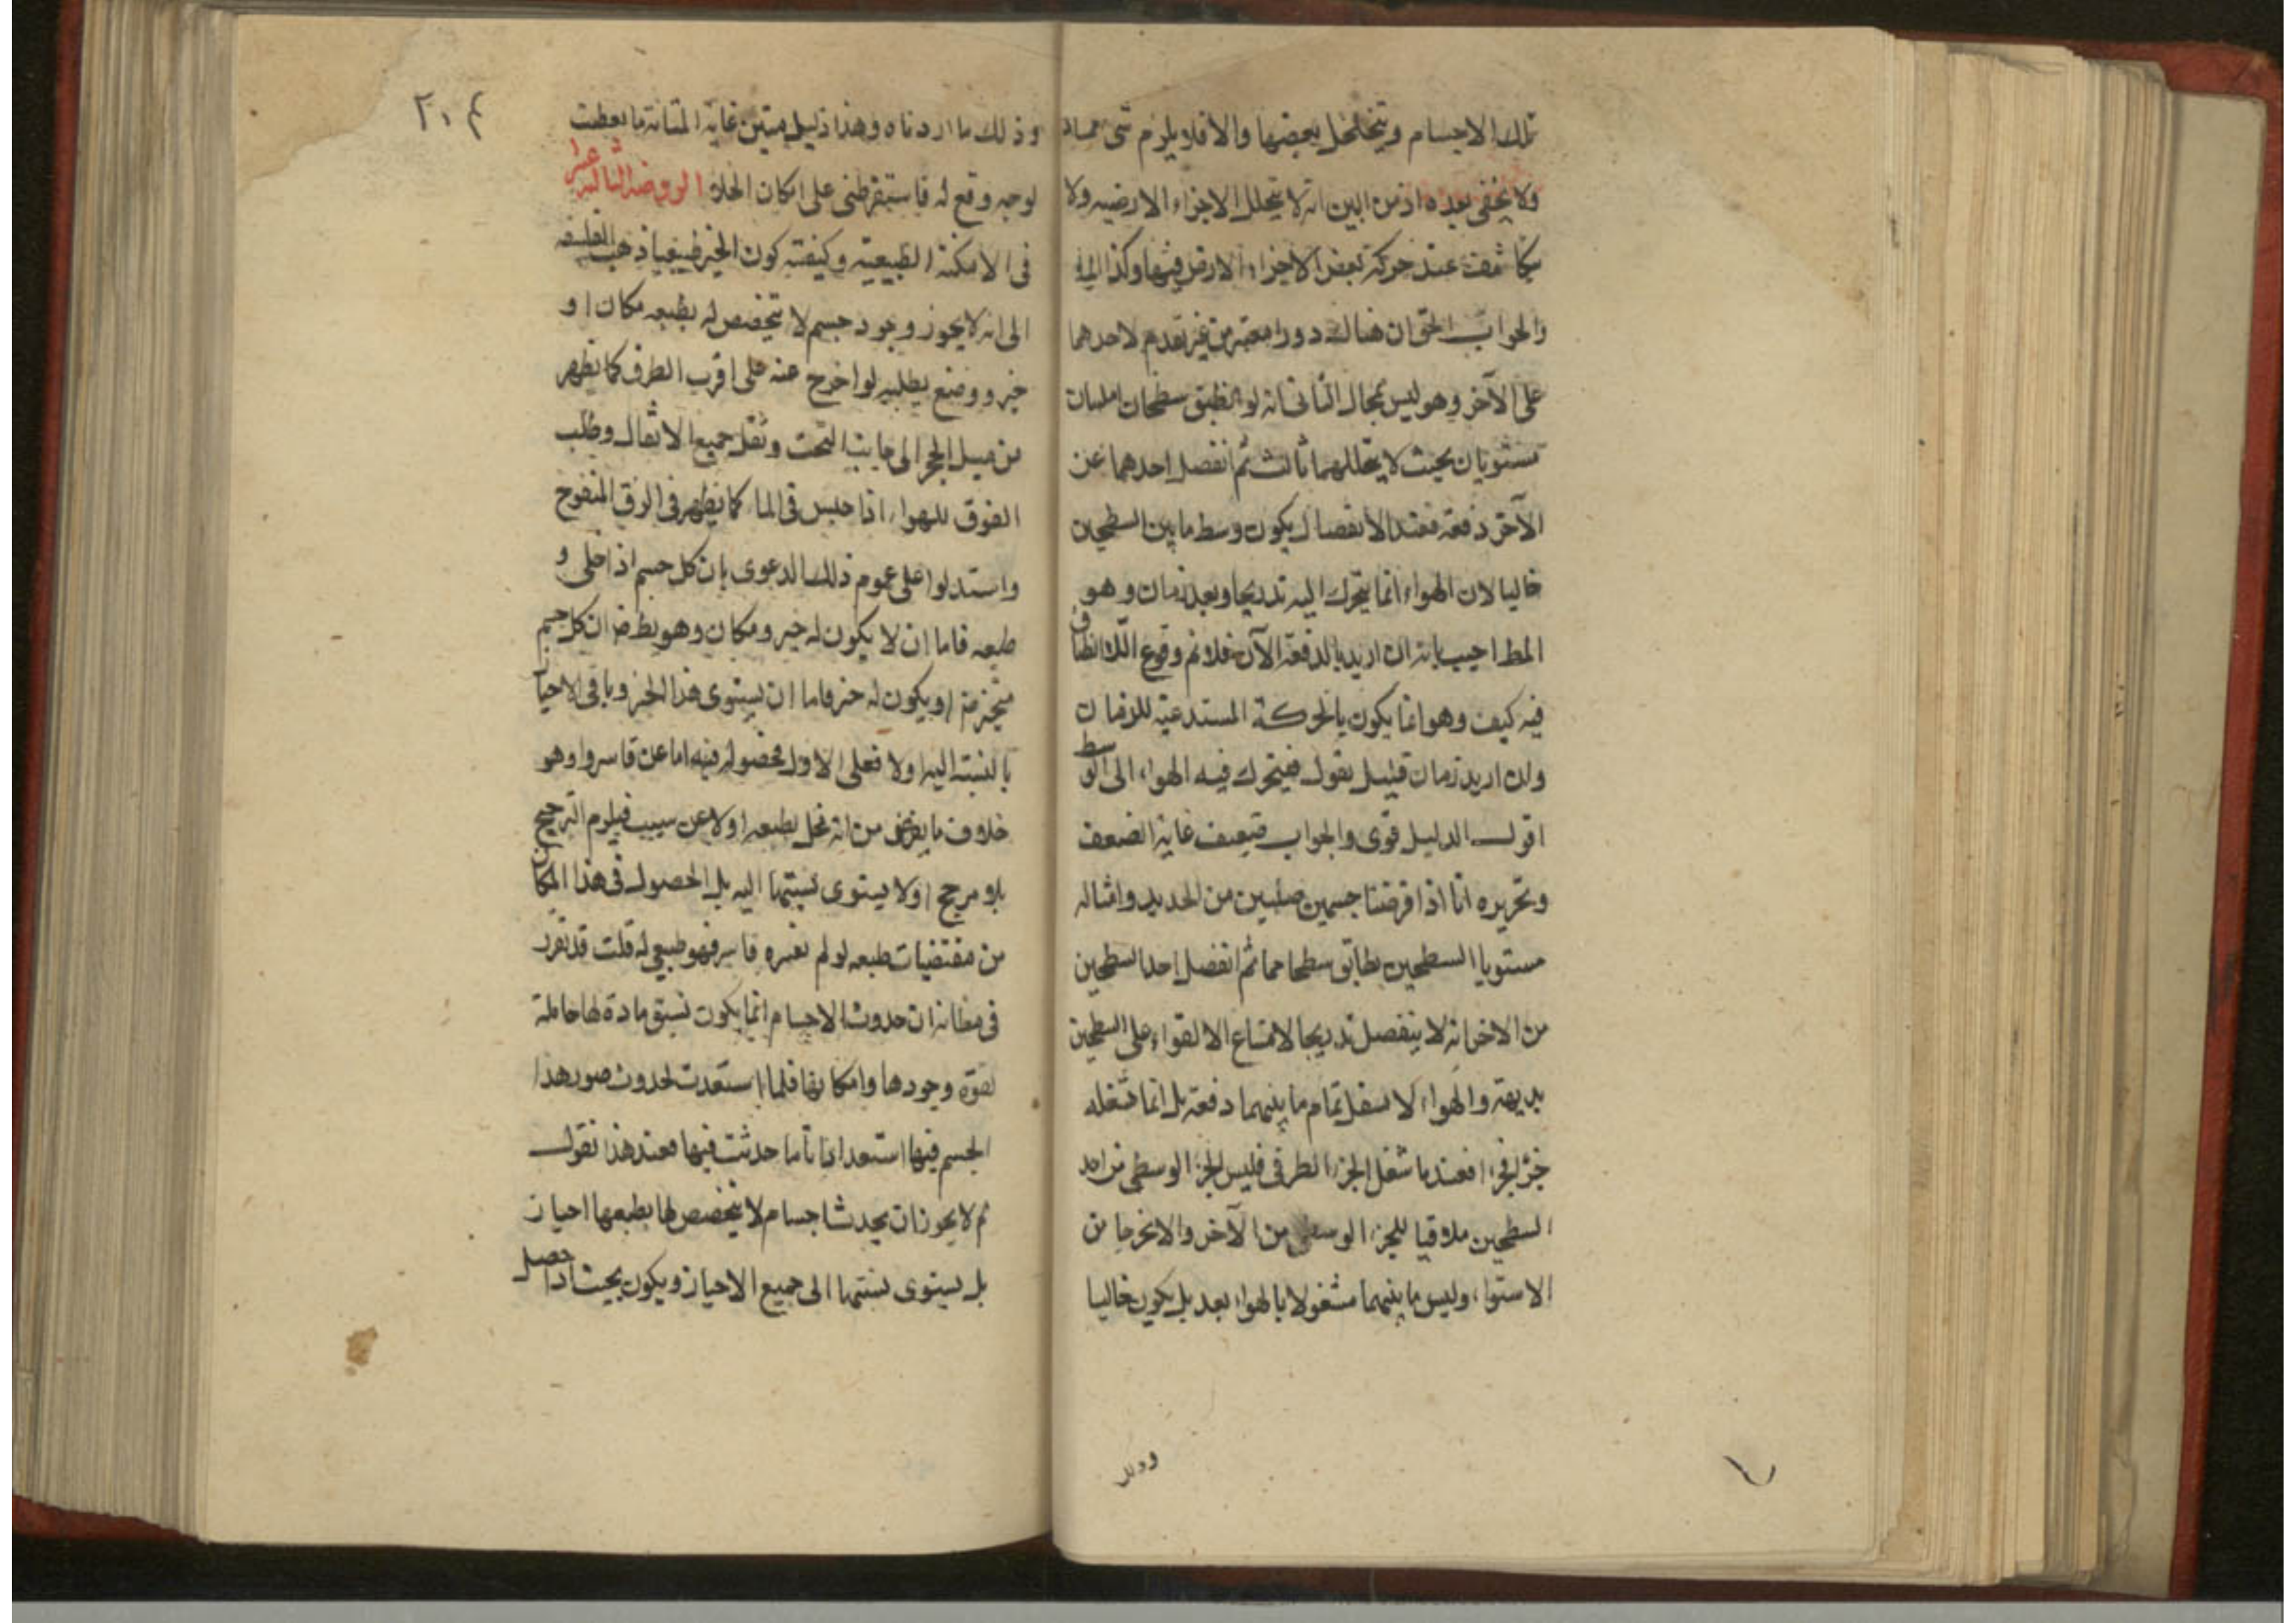 تلك الاجسام ويتخلخل بعضها والا فلا يلزم شئ مما
ولا يخفى بعده اذ من البين انه لا يتخلل الاجزاء الارضيه ولا
يتكاثف عند حركة بعض الاجزاء الارض فيها وكذا الماء
والجواب الحق ان هناك دورا معية من غير تقدم لاحدهما
على الآخر وهو ليس بمحال الثانى انه لو انطبق سطحان املسان
مستويان بحيث لا يتخللهما ثالث ثم انفصل احدهما عن
الآخر دفعة فعند الانفصال يكون وسط ما بين السطحين
خاليا لان الهواء انما يتحرك اليه تدريجا وبعد زمان وهو
المط اجيب بانه ان اريد بالدفعة الآن فلا نم وقوع اللا انطباق
فيه كيف وهو انما يكون بالحركة المستدعية للزمان
وان اريد زمان قليل نقول فيتحرك فيه الهواء الى الوسط
اقول الدليل قوى والجواب ضعيف غاية الضعف
وتحريره انا اذا فرضنا جسمين صلبين من الحديد وامثاله
مستويا السطحين يطابق سطحاهما ثم انفصل احد السطحين
من الاخر انه لا ينفصل تدريجا لامتناع الالتواء على السطحين
بديهة والهواء لا يشغل تمام ما بينهما دفعة بل انما شغله
جزءا فجزءا فعندما شغل الجزء الطرفى فليس الجزء الوسطى من احد
السطحين ملاقيا للجزء الوسطى من الآخر والا لخرجا من
الاستواء وليس ما بينهما مشغولا بالهواء بعد بل يكون خاليا
وذلك
٢٠٤
وذلك ما اردناه وهذا دليل متين غاية المتانة ما تعطنت
لوجه وقع له فاستقر ظنى على امكان الخلاء الروضة الثالثة عشر
فى الامكنة الطبيعية وكيفية كون الحيز طبيعيا ذهب الفلسفه
الى انه لا يجوز وجود جسم لا يتخصص له بطبعه مكان او
حيز ووضع يطلبه لو اخرج عنه على اقرب الطرق كما يظهر
من ميل الحجر الى جانب التحت وثقل جميع الاثقال وطلب
الفوق للهواء اذا حبس فى الماء كما يظهر فى الزق المنفوخ
واستدلوا على عموم ذلك الدعوى بان كل جسم اذا خلى و
طبعه فاما ان لا يكون له حيز ومكان وهو بط ضر ان كل جسم
متحيز مة او يكون له حيز فاما ان يستوى هذا الحيز وباقى الاحياز
بالنسبة اليه اولا فعلى الاول فحصوله فيه اما عن قاسر او هو
خلاف ما يفرض من انه نخل بطبعه اولا عن سبب فيلزم الترجيح
بلا مرجح اولا يستوى نسبتها اليه بل الحصول فى هذا المكان
من مقتضيات طبعه لو لم يقسره قاسر فهو طبيعى له قلت قد تقرر
فى مظانه ان حدوث الاجسام انما يكون بسبق مادة لها حاملة
لقوة وجودها وامكانها فلما استعدت لحدوث صور هذا
الجسم فيها استعدادا تاما حدثت فيها فعند هذا نقول
لم لا يجوز ان يحدث اجسام لا يتخصص لها بطبعها احياز
بل يستوى نسبتها الى جميع الاحياز ويكون بحيث اذا حصل